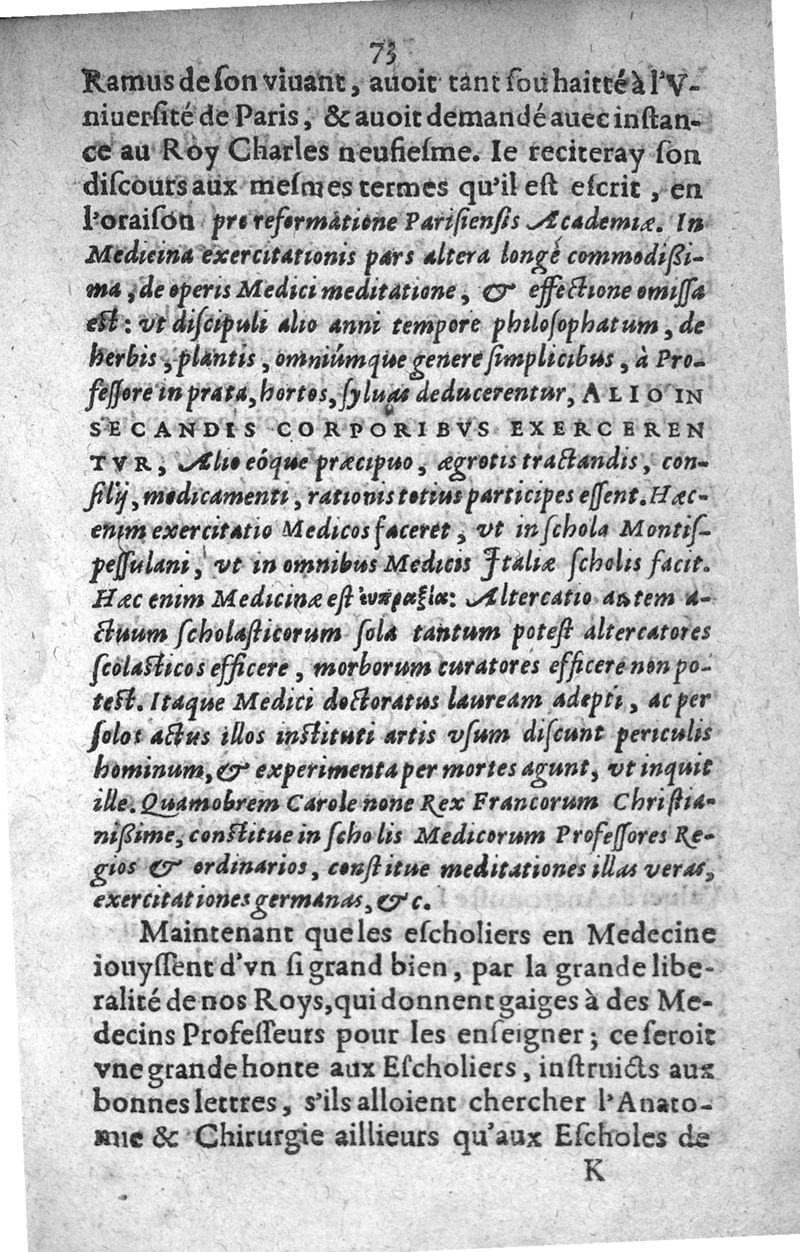 73
Ramus de ſon viuant, auoit tant ſouhaitté à l'V-
niuerſité de Paris, & auoit demandé auec inſtan-
ce au Roy Charles neufieſme. Ie reciteray ſon
diſcours aux meſmes termes qu'il eſt eſcrit, en
l'oraiſon pro reformatione Pariſienſis Academiæ. In
Medicina exercitationis pars altera longè commodißi-
ma, de operis Medici meditatione, & effectione omiſſa
eſt: vt diſcipuli alio anni tempore philoſophatum, de
herbis, plantis, omniúmque genere ſimplicibus, à Pro-
feſſore in prata, hortos, ſyluas deducerentur, ALIO IN
SECANDIS CORPORIBVS EXERCEREN
TVR, Alio eóque præcipuo, ægrotis tractandis, con-
ſilij, medicamenti, rationis totius participes eſſent. Hæc-
enim exercitatio Medicos faceret, vt in ſchola Montiſ-
peſſulani, vt in omnibus Medicis Italiæ ſcholis facit.
Hæc enim Medicinæ eſt ἐυπραξία: Altercatio autem a-
ctuum ſcholaſticorum ſola tantum poteſt altercatores
ſcolaſticos efficere, morborum curatores efficere non po-
teſt. Itaque Medici doctoratus lauream adepti, ac per
ſolos actus illos inſtituti artis vſum diſcunt periculis
hominum, & experimenta per mortes agunt, vt inquit
ille. Quamobrem Carole none Rex Francorum Chriſtia-
nißime, conſtitue in ſcholis Medicorum Profeſſores Re-
gios & ordinarios, conſtitue meditationes illas veras,
exercitationes germanas, & c.
Maintenant que les eſcholiers en Medecine
iouyſſent d'vn ſi grand bien, par la grande libe-
ralité de nos Roys, qui donnent gaiges à des Me-
decins Profeſſeurs pour les enſeigner; ce ſeroit
vne grande honte aux Eſcholiers, inſtruicts aux
bonnes lettres, s'ils alloient chercher l'Anato-
mie & Chirurgie aillieurs qu'aux Eſcholes de
K